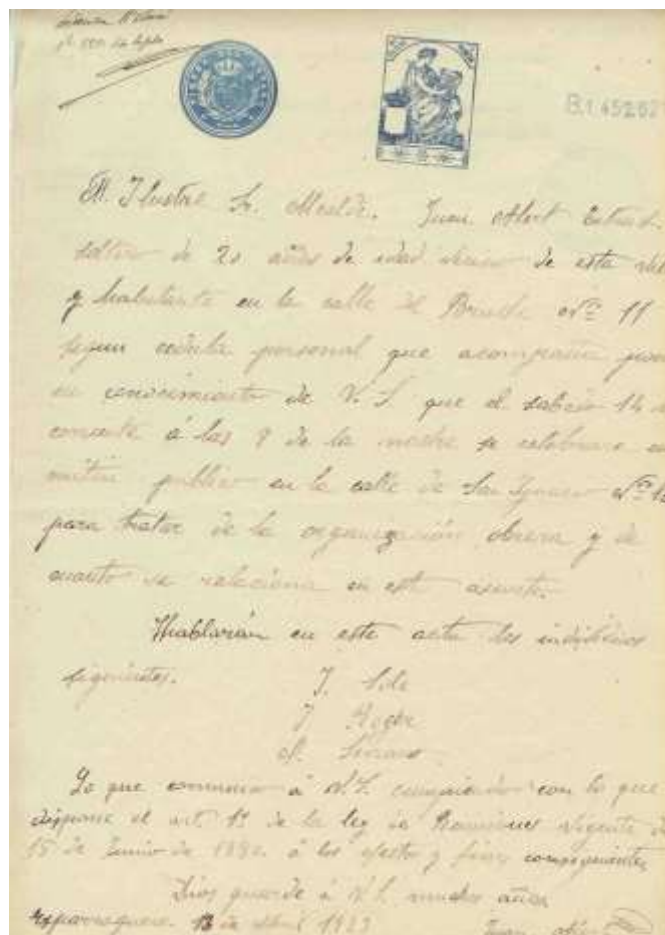 M. Ilustre Sr. Alcalde. Juan Abert
soltero de 20 años de edad vecino de esta
y habitante en la calle de Bruch Nº 11
segun cedula personal que acompaña pone
en conocimiento de V. S. que el sabado 14 del
corriente á las 9 de la noche se celebrara un
mitin publico en la calle de San Ignacio Nº
para tratar de la organización obrera y de
cuanto se relaciona en este asunto.
Hablarán en este acto los individuos
siguientes.
J.
J. Roger
Lo que comunico á V. S. cumpliendo con lo que
dispone el art 1º de la ley de Reuniones vigente de
15 de Junio de 1880. á los efectos y fines consiguientes
Dios guarde á V. S. muchos años
Esparraguera. 13 de Abril 1923
Juan